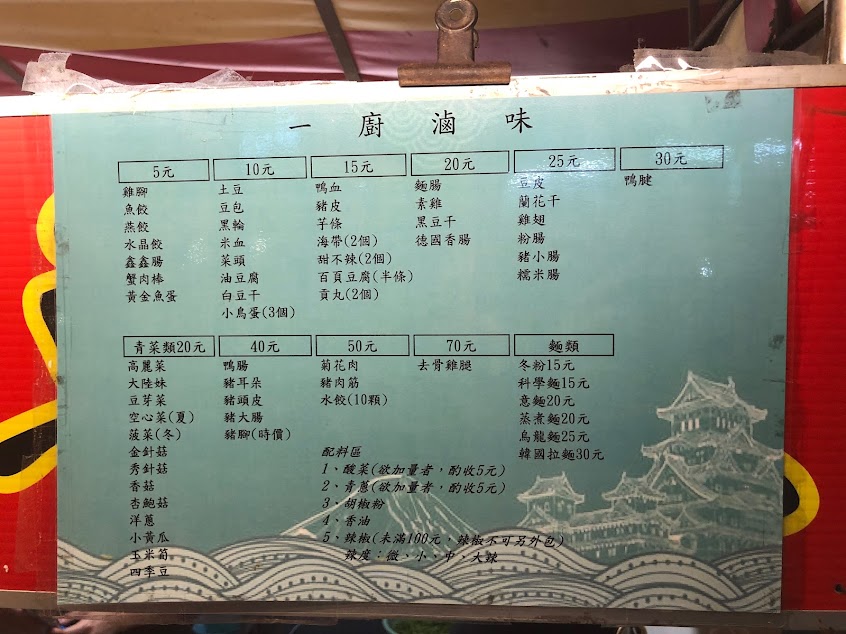 一廚滷味
5元
雞腳
魚餃
燕餃
水晶餃
鑫鑫腸
蟹肉棒
黃金魚蛋
10元
土豆
豆包
黑輪
米血
菜頭
油豆腐
白豆干
小鳥蛋(3個)
15元
鴨血
豬皮
芋條
海帶(2個)
甜不辣(2個)
百頁豆腐(半條)
貢丸(2個)
20元
麵腸
素雞
黑豆干
德國香腸
25元
豆皮
蘭花干
雞翅
粉腸
豬小腸
糯米腸
30元
鴨腱
青菜類20元
高麗菜
大陸妹
豆芽菜
空心菜(夏)
菠菜(冬)
金針菇
秀針菇
香菇
杏鮑菇
洋蔥
小黃瓜
玉米筍
四季豆
40元
鴨腸
豬耳朵
豬頭皮
豬大腸
豬腳(時價)
50元
菊花肉
豬肉筋
水餃(10顆)
70元
去骨雞腿
麵類
冬粉15元
科學麵15元
意麵20元
蒸煮麵20元
烏龍麵25元
韓國拉麵30元
配料區
1、酸菜(欲加量者，酌收5元)
2、青蔥(欲加量者，酌收5元)
3、胡椒粉
4、香油
5、辣椒(未滿100元，辣椒不可另外包)
辣度：微、小、中、大辣